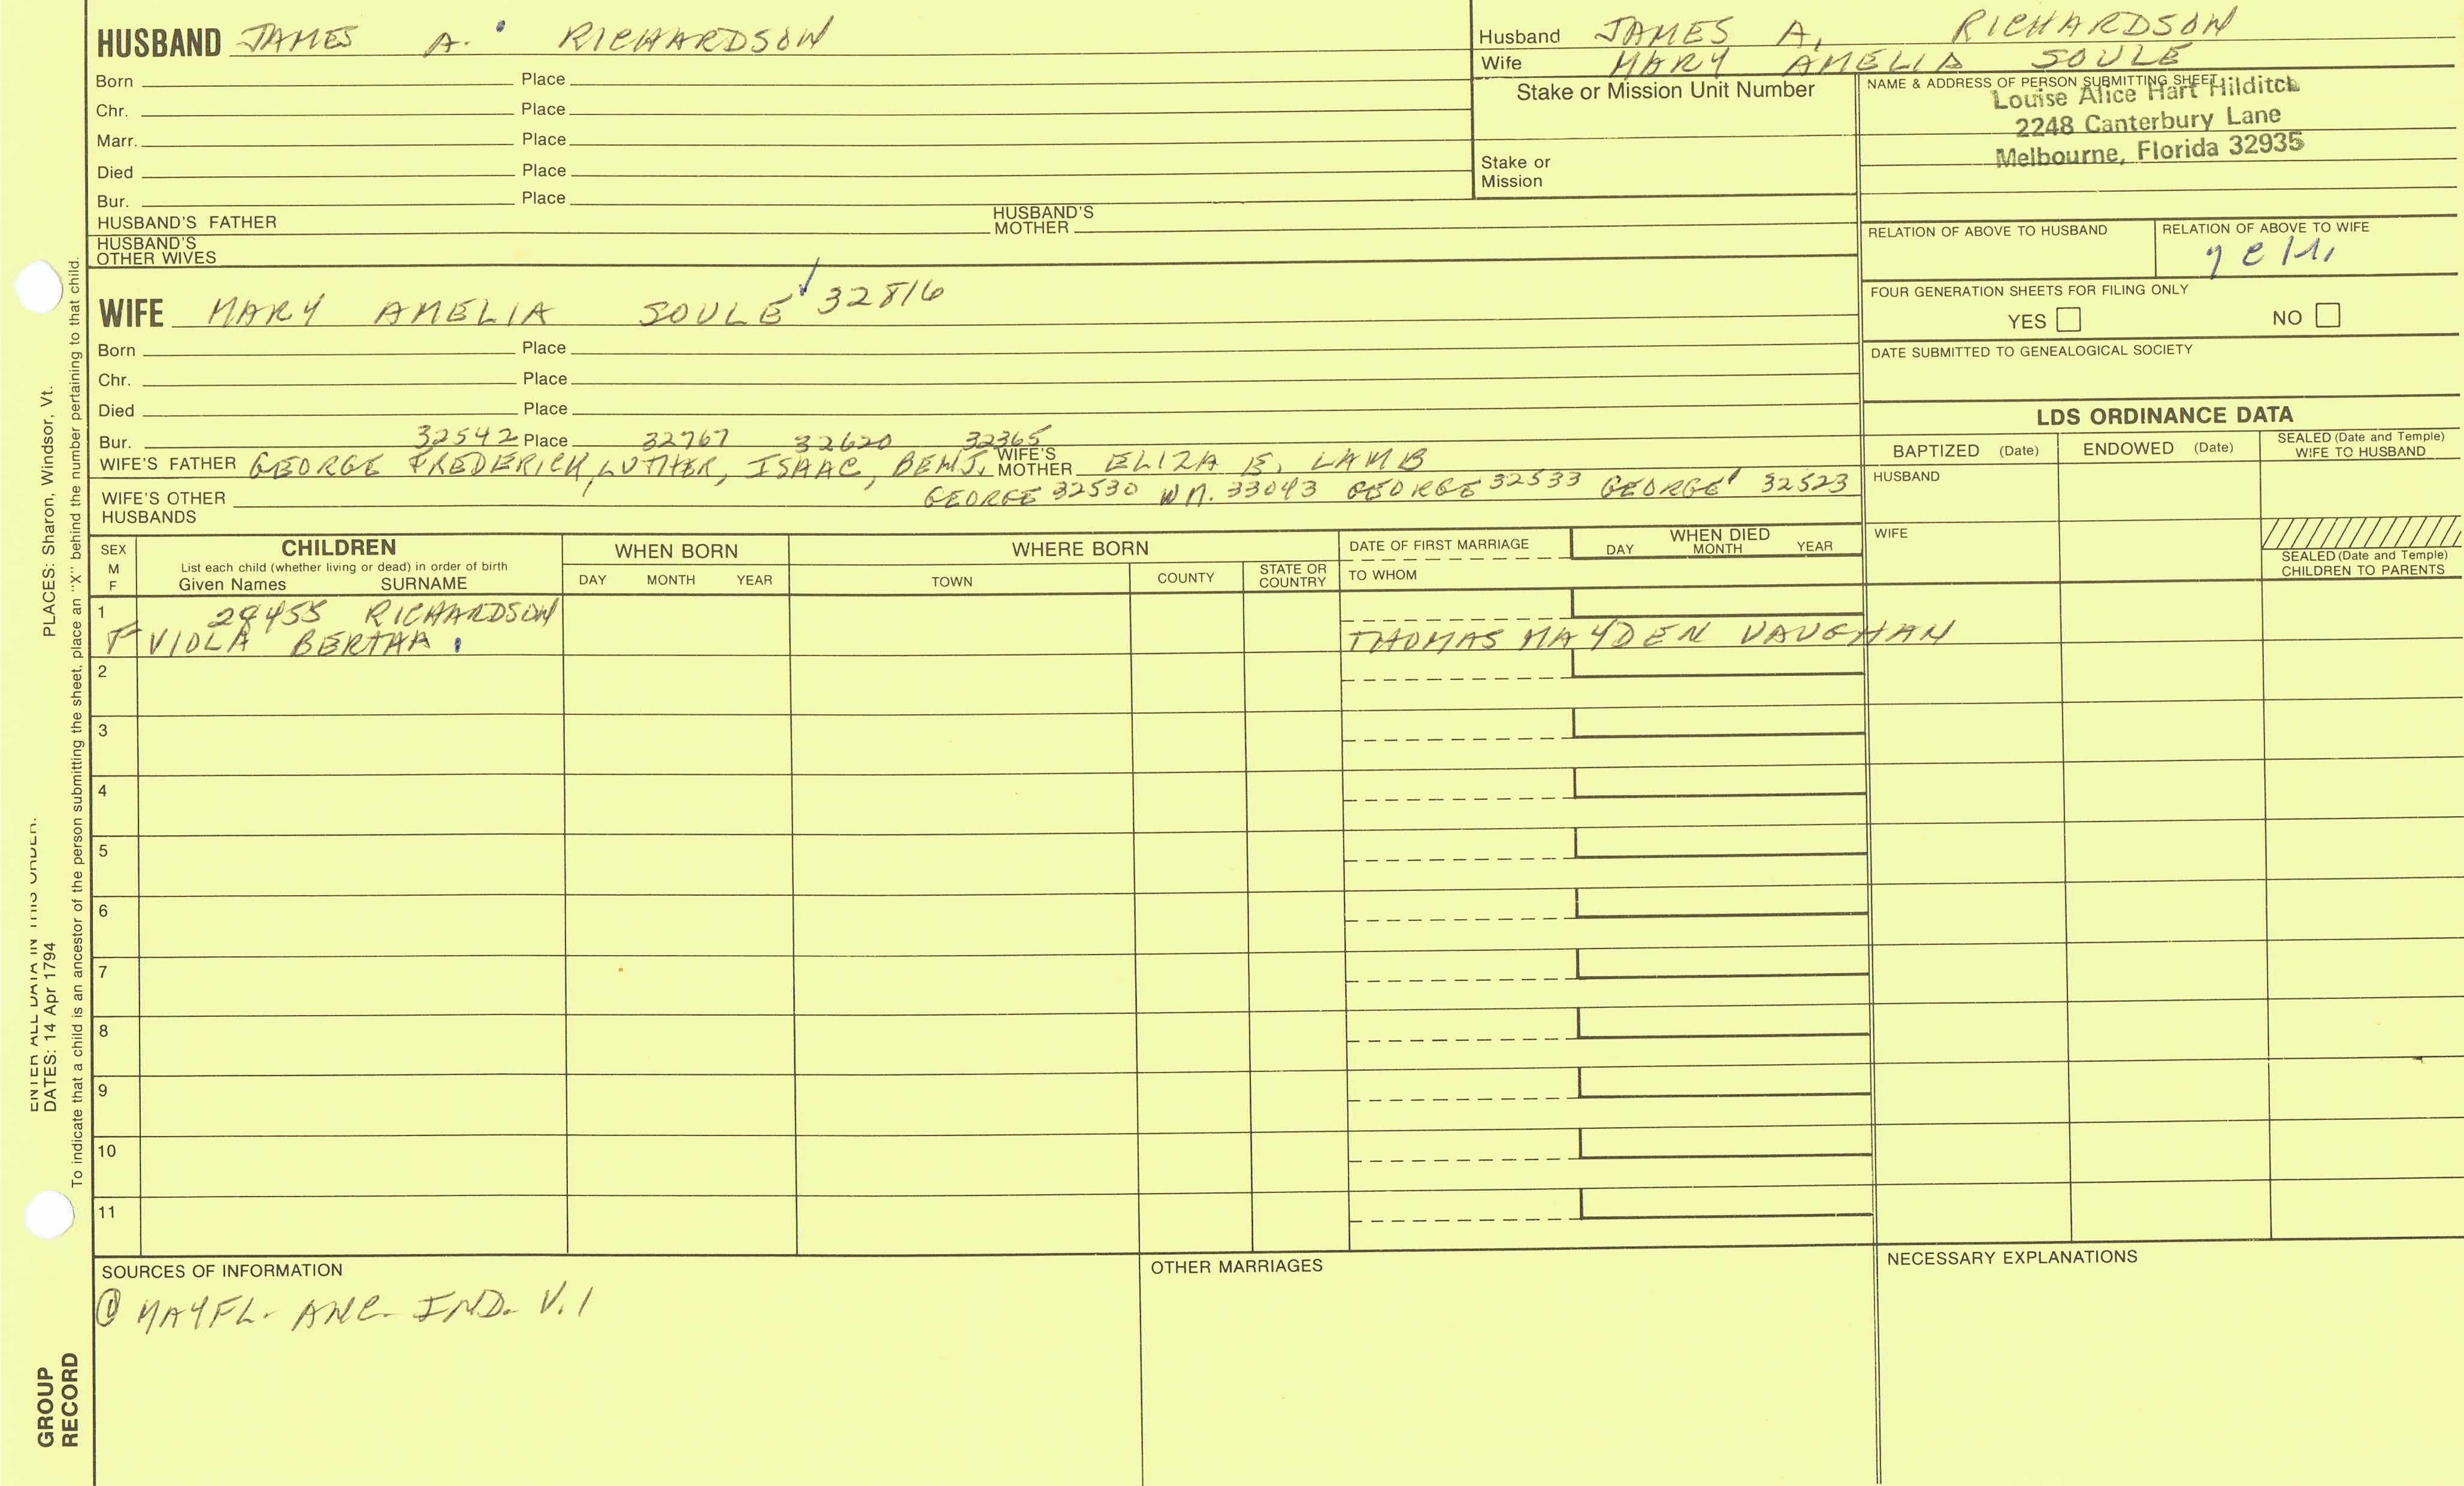 HUSBAND JAMES A. RICHARDSON
Born Place
Chr. Place
Marr. Place
Died Place
Bur. Place
HUSBAND'S FATHER HUSBAND'S MOTHER
HUSBAND'S OTHER WIVES
Husband JAMES A. RICHARDSON
Wife MARY AMELIA SOULE
Stake or Mission Unit Number
Stake or Mission
NAME & ADDRESS OF PERSON SUBMITTING SHEET
Louise Alice Hart Hilditch
2248 Canterbury Lane
Melbourne, Florida 32935
RELATION OF ABOVE TO HUSBAND
RELATION OF ABOVE TO WIFE
FOUR GENERATION SHEETS FOR FILING ONLY
YES NO
DATE SUBMITTED TO GENEALOGICAL SOCIETY
WIFE MARY AMELIA SOULE 32816
Born Place
Chr. Place
Died Place
Bur. 32542 Place 32767 32620 32365
WIFE'S FATHER GEORGE FREDERICK, LUTHER, ISAAC, BENJ. WIFE'S MOTHER ELIZA E. LAMB
WIFE'S OTHER HUSBANDS GEORGE 32530 WM. 33043 GEORGE 32533 GEORGE 32523
LDS ORDINANCE DATA
BAPTIZED (Date) ENDOWED (Date) SEALED (Date and Temple) WIFE TO HUSBAND
HUSBAND
WIFE
SEALED (Date and Temple) CHILDREN TO PARENTS
SEX M F
CHILDREN
List each child (whether living or dead) in order of birth
Given Names SURNAME
WHEN BORN
DAY MONTH YEAR
WHERE BORN
TOWN COUNTY STATE OR COUNTRY
DATE OF FIRST MARRIAGE
TO WHOM
WHEN DIED
DAY MONTH YEAR
1 28455 RICHARDSON
F VIOLA BERTHA THOMAS MAYDEN VAUGHAN
2
3
4
5
6
7
8
9
10
11
SOURCES OF INFORMATION
① MAYFL. ANC. IND. V.1
OTHER MARRIAGES
NECESSARY EXPLANATIONS
PLACES: Sharon, Windsor, Vt.
ENTER ALL DATA IN THIS ORDER:
DATES: 14 Apr 1794
To indicate that a child is an ancestor of the person submitting the sheet, place an "X" behind the number pertaining to that child.
GROUP
RECORD